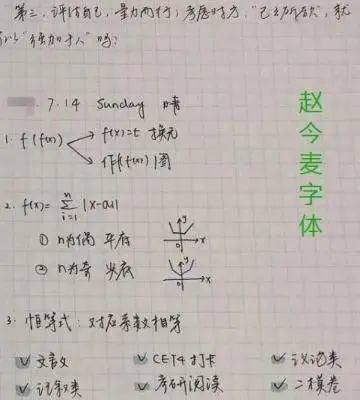 第三,评估自己,量力而行;考虑对方,"己之所欲",就
可以"强加于人"吗?
7.14 Sunday 晴
赵今麦字体
1. f(f(x)) → f(x)=t 换元
→ 作f(f(x))图
2. f(x)= n∑i=1 |x-ai|
① n为偶 平底 y x 0
② n为奇 尖底 y x 0
3. 恒等式:对应系数相等
文言文 CET4打卡 议论类
记叙类 考研阅读 二模卷